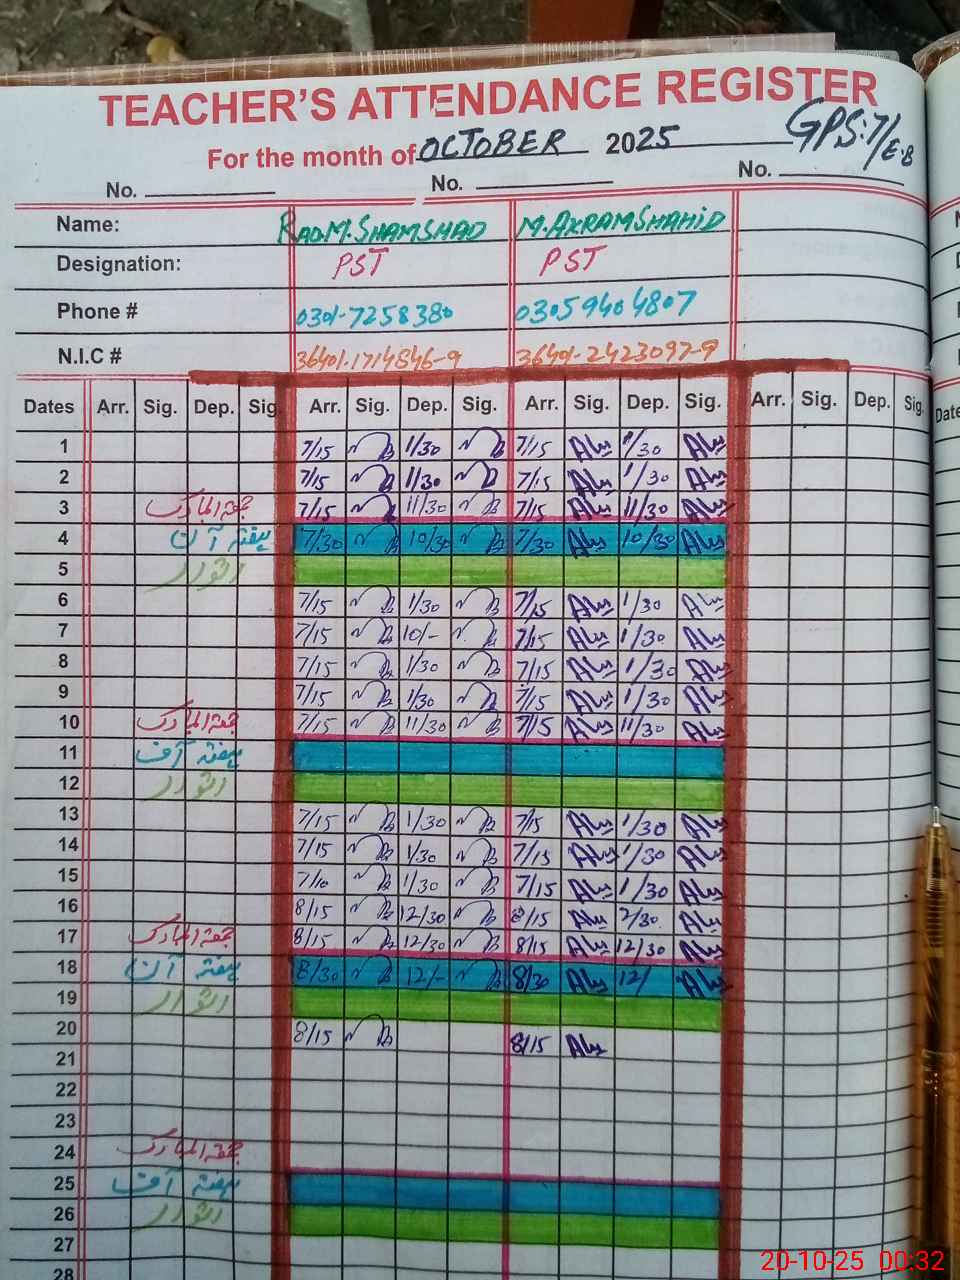 TEACHER'S ATTENDANCE REGISTER
For the month of OCTOBER 2025 GPS:7/E.B
No. No. No.
Name: RAO.M.SHAMSHAD M.AKRAMSHAHID
Designation: PST PST
Phone # 0301-7258380 03059404807
N.I.C # 36401-1714846-9 36401-2423097-9
Dates Arr. Sig. Dep. Sig. Arr. Sig. Dep. Sig. Arr. Sig. Dep. Sig. Arr. Sig. Dep. Sig. Date
1 7/15 1/30 7/15 1/30
2 7/15 1/30 7/15 1/30
3 جمعۃ المبارک 7/15 11/30 7/15 11/30
4 ہفتہ آن 7/30 10/30 7/30 10/30
5 اتوار
6 7/15 1/30 7/15 1/30
7 7/15 10/- 7/15 1/30
8 7/15 1/30 7/15 1/30
9 7/15 1/30 7/15 1/30
10 جمعۃ المبارک 7/15 11/30 7/15 11/30
11 ہفتہ آف
12 اتوار
13 7/15 1/30 7/15 1/30
14 7/15 1/30 7/15 1/30
15 7/10 1/30 7/15 1/30
16 8/15 12/30 8/15 2/30
17 جمعۃ المبارک 8/15 12/30 8/15 12/30
18 ہفتہ آن 8/30 12/- 8/30 12/
19 اتوار
20 8/15 8/15
21
22
23
24 جمعۃ المبارک
25 ہفتہ آف
26 اتوار
27
28
20-10-25 00:32